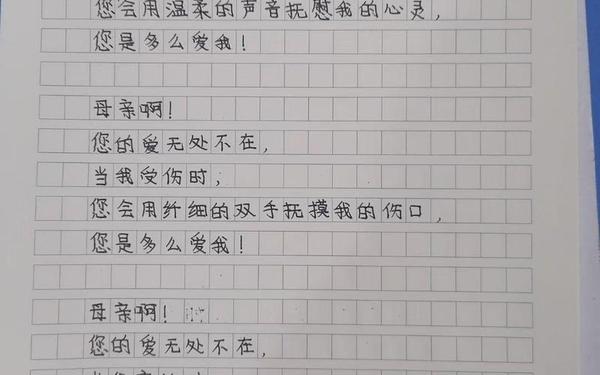 您会用温柔的声音抚慰我的心灵，
您是多么爱我！
母亲啊！
您的爱无处不在，
当我受伤时，
您会用纤细的双手抚摸我的伤口，
您是多么爱我！
母亲啊！
您的爱无处不在，